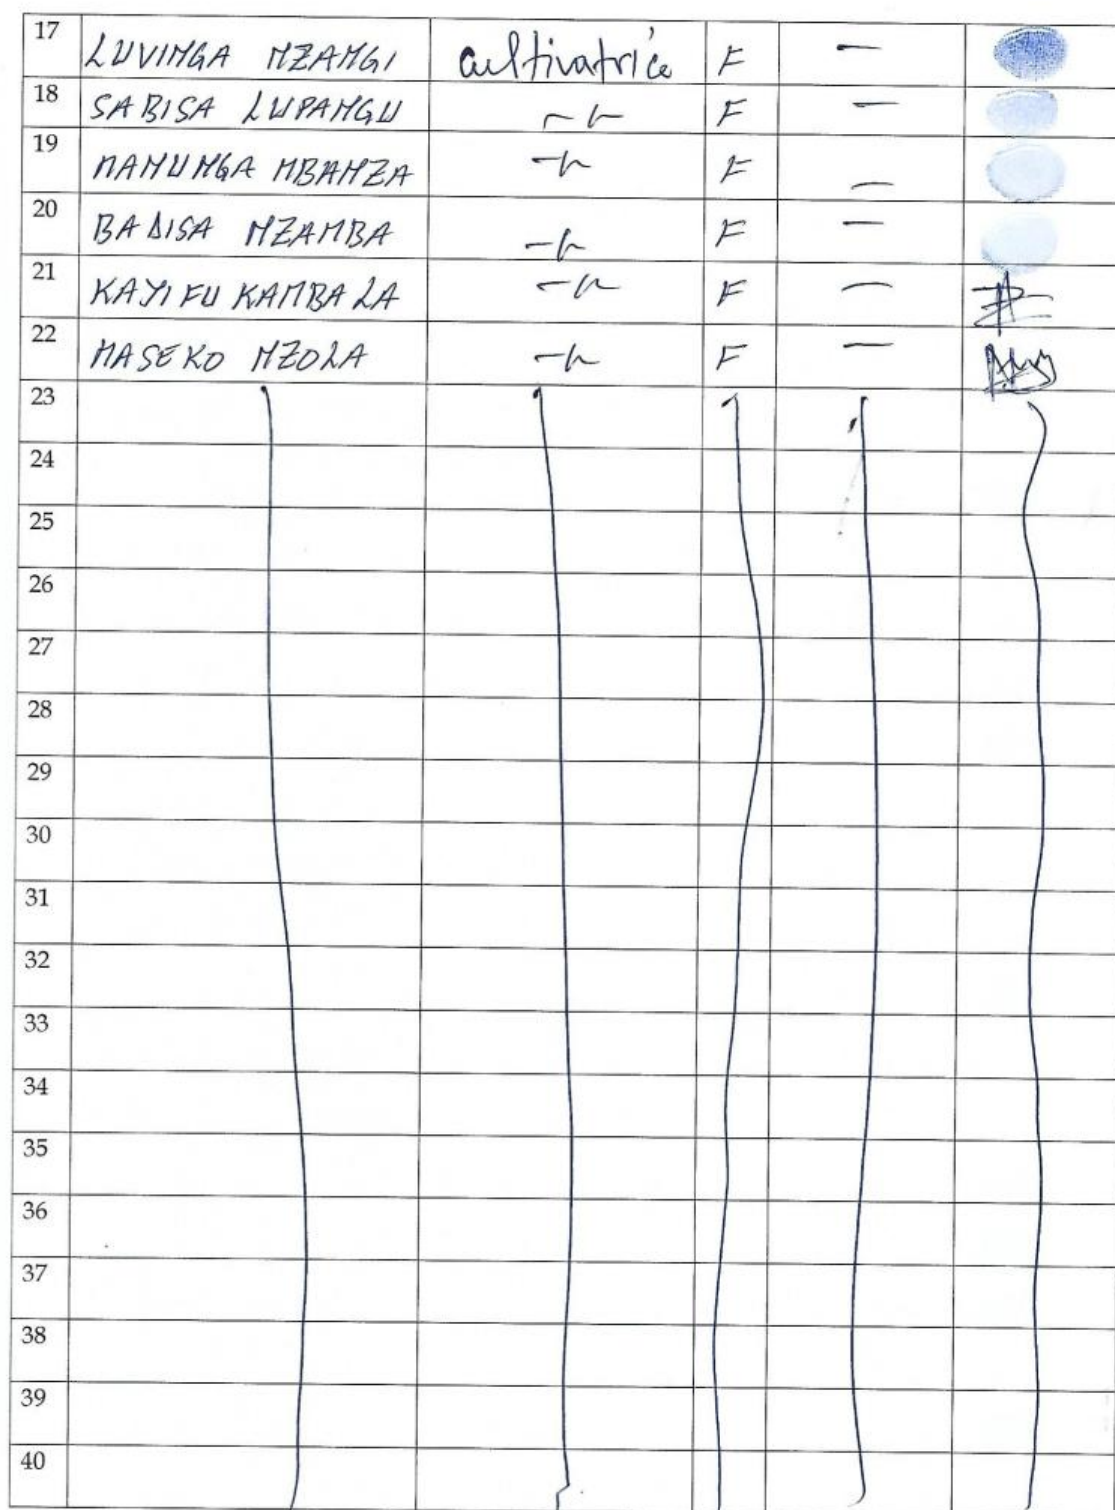 17 LUVINGA NZANGI cultivatrice F —
18 SABISA LUPANGU -//- F —
19 MANUNGA MBANZA -//- F —
20 BADISA NZAMBA -//- F —
21 KAYIFU KAMBALA -//- F —
22 MASEKO NZOLA -//- F —
23
24
25
26
27
28
29
30
31
32
33
34
35
36
37
38
39
40